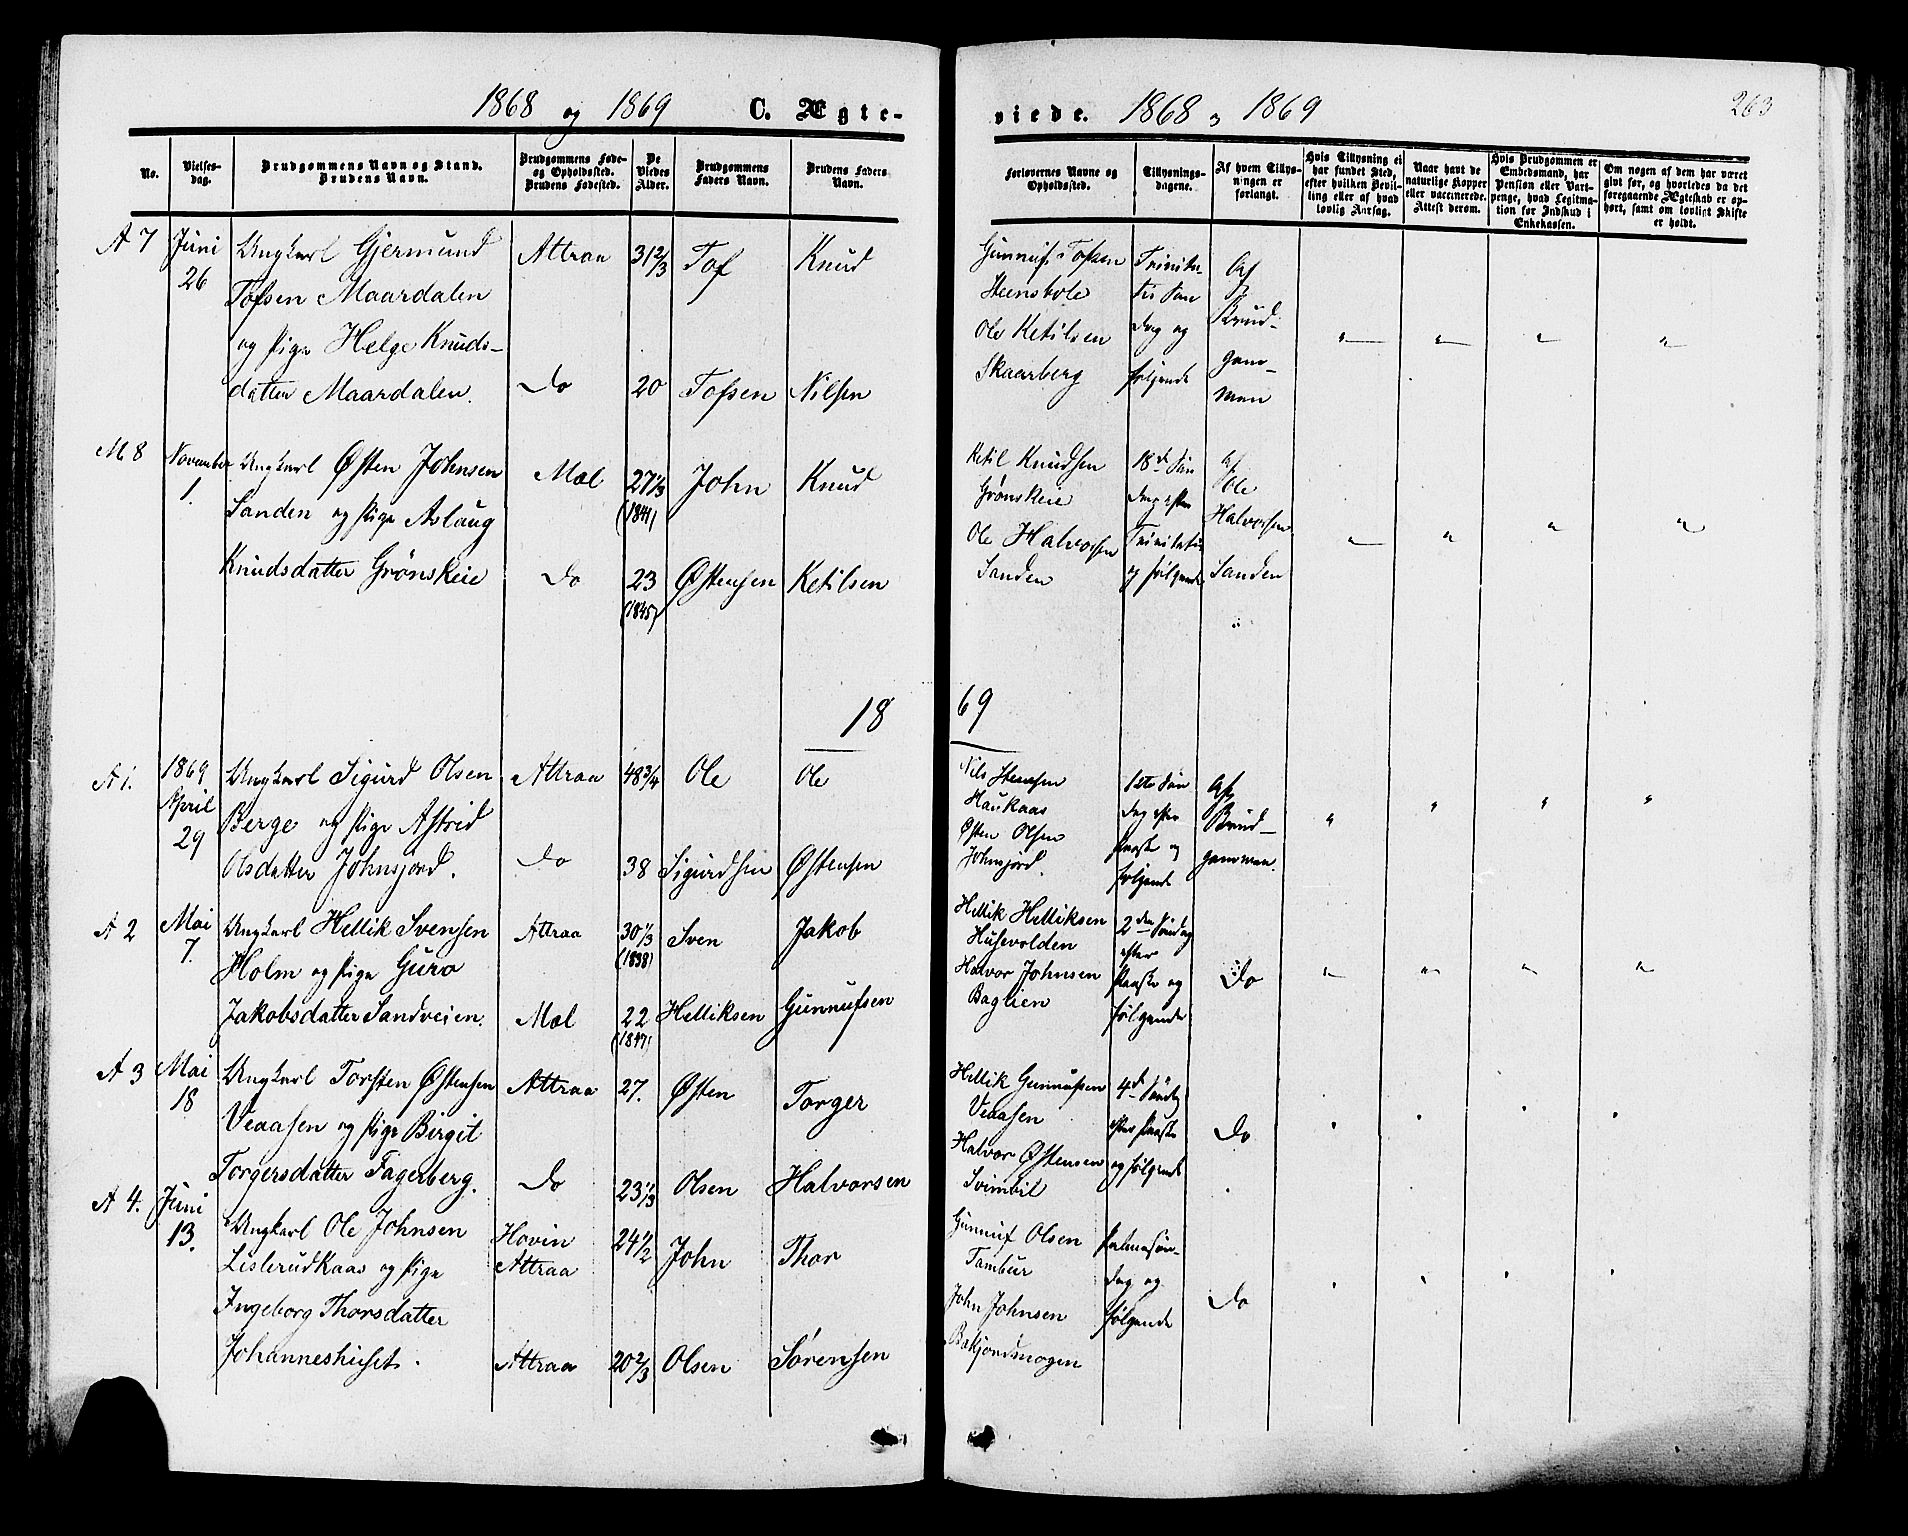 1868 og 1869 C. Ægte-
No.
Vielses-
dag.
Brudgommens Navn og Stand.
Brudens Navn.
Brudgommens Føde-
og Opholdssted.
Brudens Fødested.
De
Viedes
Alder.
Brudgommens
Faders Navn.
Brudens Faders
Navn.
A 7 Juni 26
Ungkarl Gjermund
Tofsen Maardalen
og Pige Helge Knuds-
datter Maardalen.
Attraa
Do
31 2/3
20
Tof
Tofsen
Knud
Nilsen
M. 8 November 1.
Ungkarl Østen Johnsen
Sanden og Pige Aslaug
Knudsdatter Grønskeie
Mæl
Do
27 1/3
(1841)
23
(1845)
John
Østensen
Knud
Ketilsen
18
A 1. 1869 April 29
Ungkarl Sigurd Olsen
Berge og Pige Astrid
Olsdatter Johnsjord.
Attraa
Do
48 3/4
38
Ole
Sigurdsen
Ole
Østensen
A 2 Mai 7.
Ungkarl Hellik Svensen
Holm og Pige Guro
Jakobsdatter Sandveien.
Attraa
Mæl
30 1/3
(1838)
22
(1847)
Sven
Helliksen
Jakob
Gunnufsen
A 3 Mai 18
Ungkarl Torsten Østensen
Veaasen og Pige Birgit
Torgersdatter Fagerberg.
Attraa
Do
27.
23 1/3
Østen
Olsen
Torger
Halvorsen
A 4. Juni 13.
Ungkarl Ole Johnsen
Lislerudkaas og Pige
Ingeborg Thorsdatter
Johanneshuset.
Hovin
Attraa
Attraa
24 1/2
20 2/3
John
Olsen
Thor
Sørensen
viede. 1868 og 1869
263
Forlovernes Navne og
Opholdssted.
Tillysnings-
dagene.
Af hvem Tillys-
ningen er
forlangt.
Hvis Tillysning ei
har fundet Sted,
efter hvilken Bevil-
ling eller af hvad
lovlig Aarsag.
Naar havt de
naturlige Kopper
eller vaccinerede.
Attest derom.
Hvis Brudgommen er
Embedsmand, har
Pension eller Vart-
penge, hvad Legitima-
tion for Indskud i
Enkekassen.
Om nogen af dem har været
givt før, og hvorledes da det
foregaaende Ægteskab er op-
hørt, samt om lovligt Skifte
er holdt.
Gunnuf Tofsen
Steensbole
Ole Ketilsen
Skaarberg
Trinita-
tis Søn
dag og
følgende
Af
Brud-
gom-
men
Ketil Knudsen
Grønskeie
Ole Halvorsen
Sanden
18de Søn
dag efter
Trinitatis
og følgende
Af
Ole
Halvorsen
Sanden
69
Nils Steensen
Haukaas
Østen Olsen
Johnsjord.
1ste Søn
dag efter
Paaske og
følgende
Af
Brud-
gommen.
Hellik Helliksen
Husevolden
Halvor Johnsen
Baglien
2den Søndag
efter
Paaske og
følgende
Do
Hellik Gunnufsen
Veaasen
Halvor Østensen
Svimbil
4de Søndag
efter Paaske
og følgende
Do
Gunnuf Olsen
Tambur
John Johnsen
Bakjordsmogen
Palmesøn-
dag og
følgende
Do